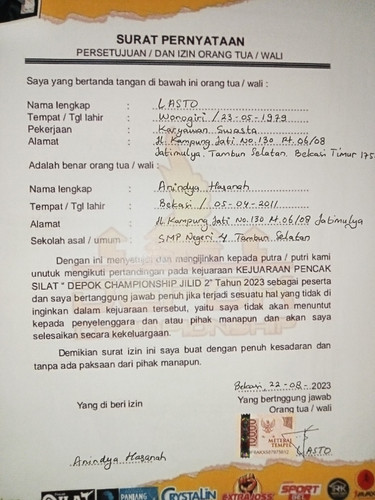 SURAT PERNYATAAN
PERSETUJUAN / DAN IZIN ORANG TUA / WALI
Saya yang bertanda tangan di bawah ini orang tua / wali :
Nama lengkap : LASTO
Tempat / Tgl lahir : Wonogiri / 23-05-1979
Pekerjaan : Karyawan Swasta
Alamat : Jl. Kampung Jati No.130 Rt.06/08
Jatimulya. Tambun Selatan. Bekasi Timur 175
Adalah benar orang tua / wali :
Nama lengkap : Anindya Hasanah
Tempat / Tgl lahir : Bekasi / 05-04-2011
Alamat : Jl. Kampung Jati No.130 Rt.06/08 Jatimulya
Sekolah asal / umum : SMP Negeri 4 Tambun Selatan
Dengan ini menyetujui dan mengijinkan kepada putra / putri kami
unutuk mengikuti pertandingan pada kejuaraan KEJUARAAN PENCAK
SILAT " DEPOK CHAMPIONSHIP JILID 2" Tahun 2023 sebagai peserta
dan saya bertanggung jawab penuh jika terjadi sesuatu hal yang tidak di
inginkan dalam kejuaraan tersebut, yaitu saya tidak akan menuntut
kepada penyelenggara dan atau pihak manapun dan akan saya
selesaikan secara kekeluargaan.
Demikian surat izin ini saya buat dengan penuh kesadaran dan
tanpa ada paksaan dari pihak manapun.
Bekasi, 22-08-2023
Yang di beri izin
Yang bertnggung jawab
Orang tua / wali
10000
METERAI
TEMPEL
LASTO
Anindya Hasanah
PANJANG
CRYSTALIN
EXTRAJOSS
SPORT